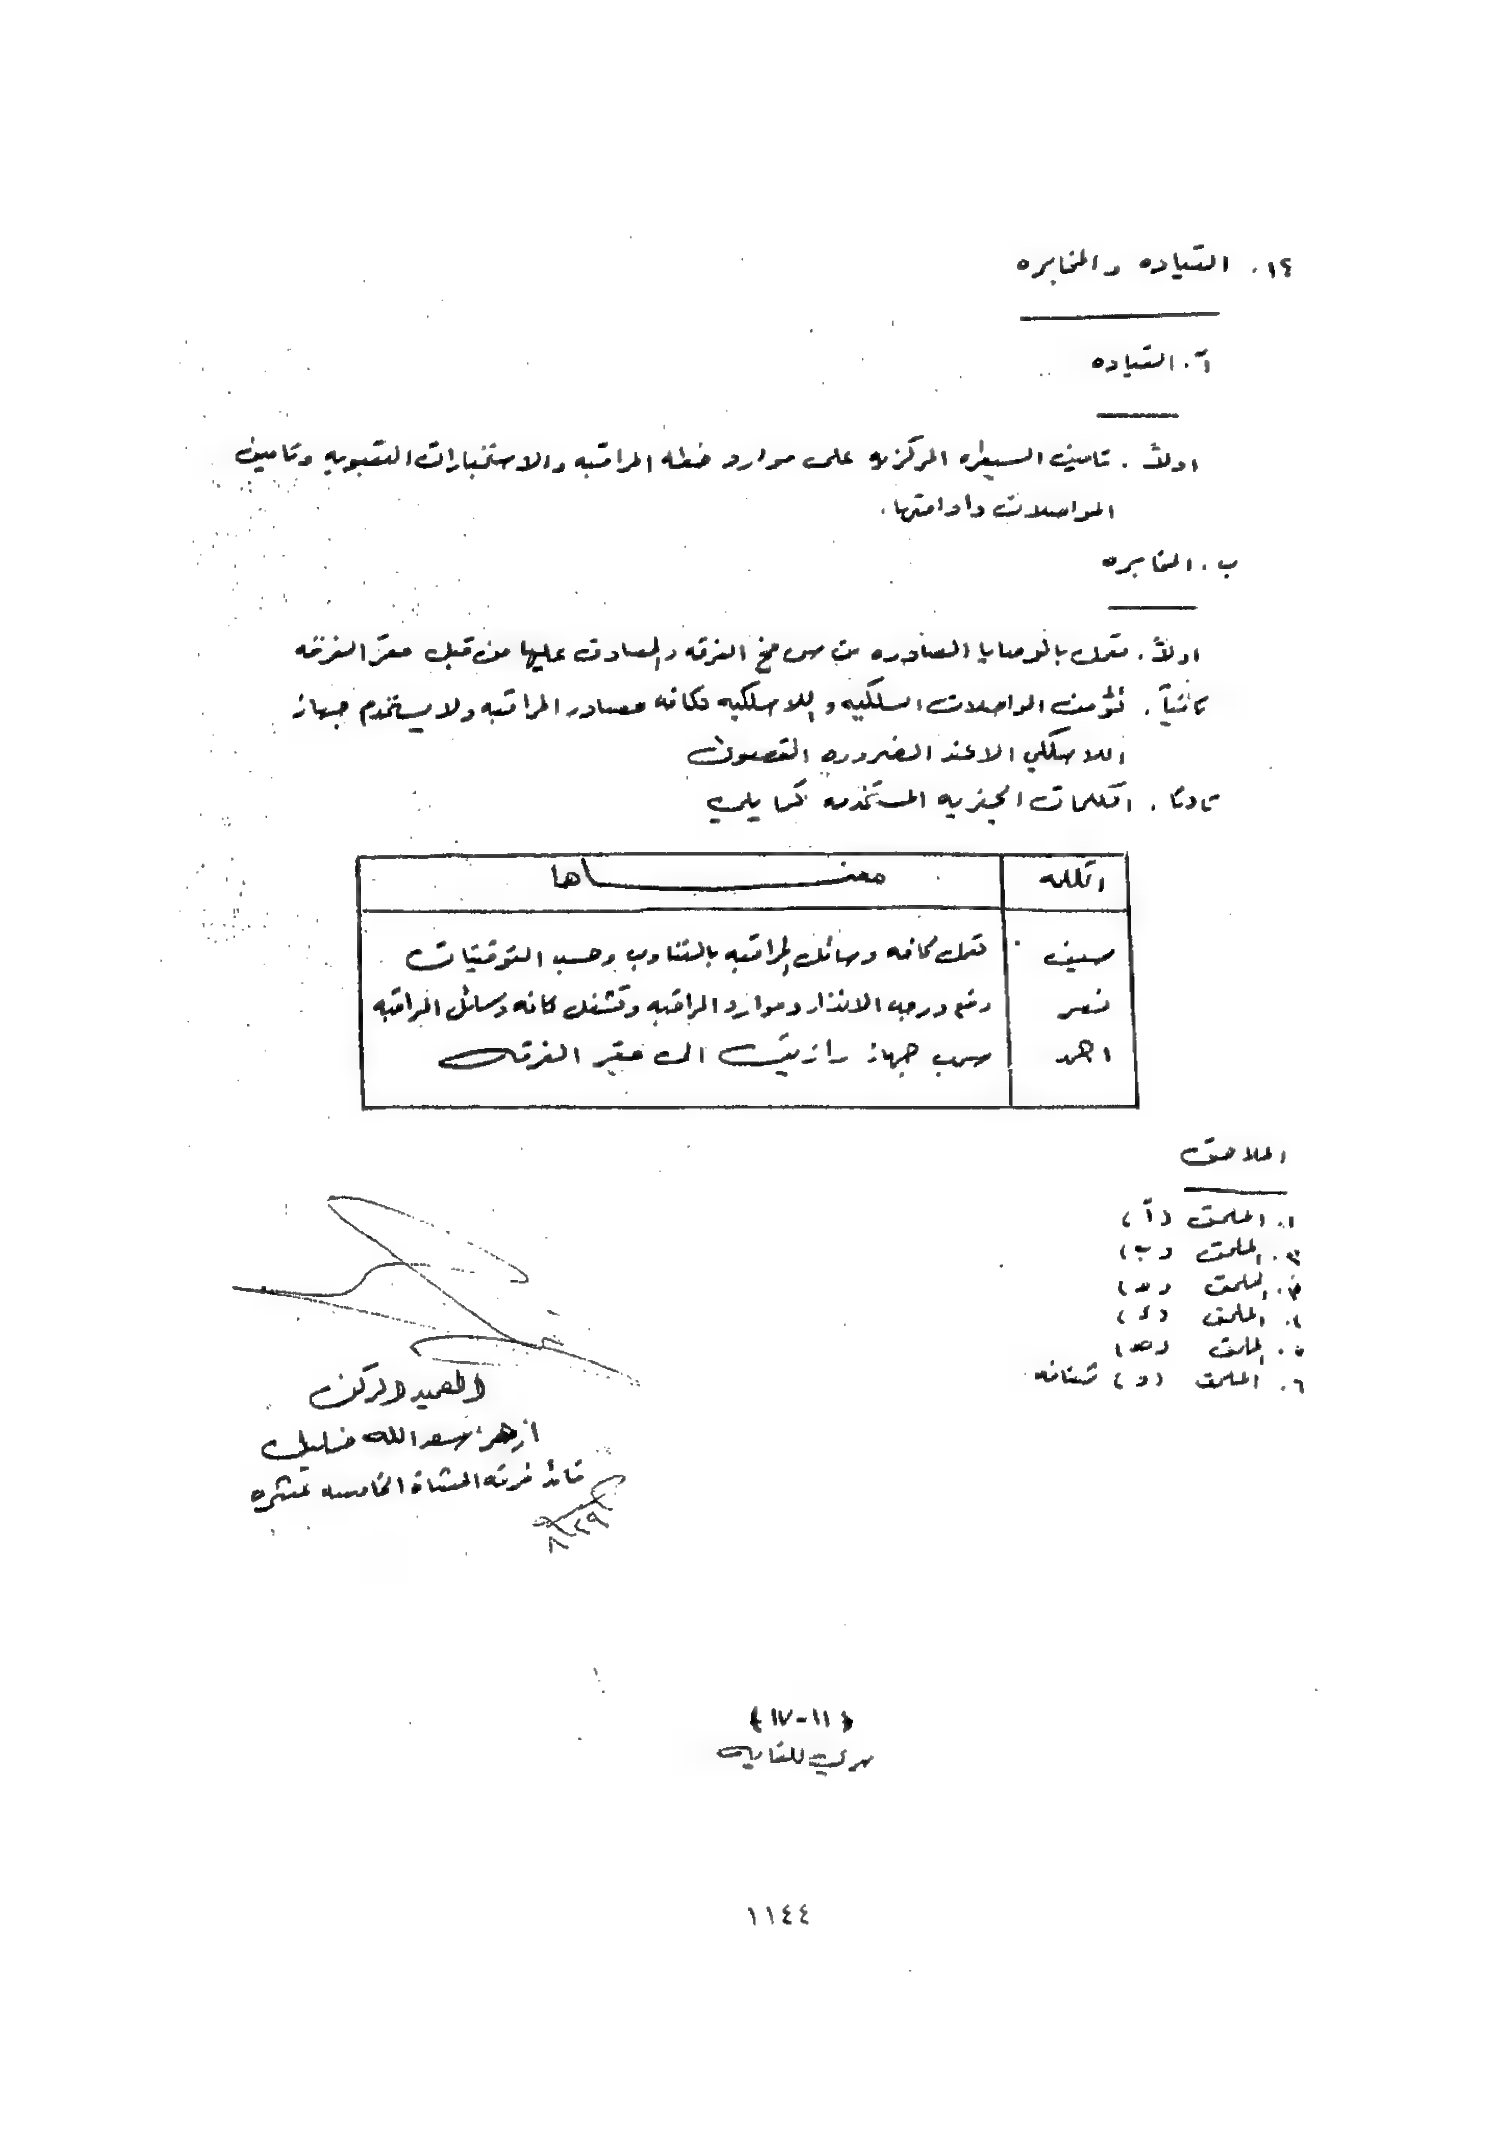 ١٢. القياده والمخابره
آ. القياده
اولاً. تامين السيطره المركزيه على موارد خطه المراقبه والاستخبارات التعبويه وتامين
المواصلات وادامتها.
ب. المخابره
اولاً. تعمل بالوصايا الصادره من مخ الفرقه والمصادق عليها من قبل مقر الفرقه
ثانياً. تؤمن المواصلات السلكيه واللاسلكيه لكافه مصادر المراقبه ولا يستخدم جهاز
اللاسلكي الا عند الضروره القصوى
ثالثاً. الكلمات الجفريه المستخدمه كما يلي
الكلمه معنـــــــــاها
سيف تعمل كافه وسائل المراقبه بالتناوب وحسب التوقيتات
نصر رفع درجه الانذار وموارد المراقبه وتشغل كافه وسائل المراقبه
احمد سحب جهاز رازيت الى مقر الفرقه
الملاحق
١. الملحق (آ)
٢. الملحق (ب)
٣. الملحق (حـ)
٤. الملحق (د)
٥. الملحق (هـ)
٦. الملحق (و) شفافه
العميد الركن
ازهر سعدالله خليل
قائد فرقه المشاة الخامسه عشره
٨/٢٩
(١١-١٧)
سري للغايه
١١٤٤